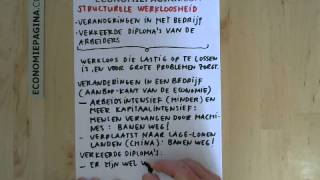 ECONOMIEPAGINA.COM
STRUCTURELE WERKLOOSHEID
- VERANDERINGEN IN HET BEDRIJF
- VERKEERDE DIPLOMA'S VAN DE
ARBEIDERS
WERKLOOS DIE LASTIG OP TE LOSSEN
IS EN VOOR GROTE PROBLEMEN ZORGT.
VERANDERINGEN IN EEN BEDRIJF
(AANBOD-KANT VAN DE ECONOMIE)
- ARBEIDSINTENSIEF (MINDER) EN
MEER KAPITAALINTENSIEF:
MENSEN VERVANGEN DOOR MACHI-
NES: BANEN WEG!
- VERPLAATST NAAR LAGE-LONEN
LANDEN (CHINA): BANEN WEG!
VERKEERDE DIPLOMA'S:
- ER ZIJN WEL